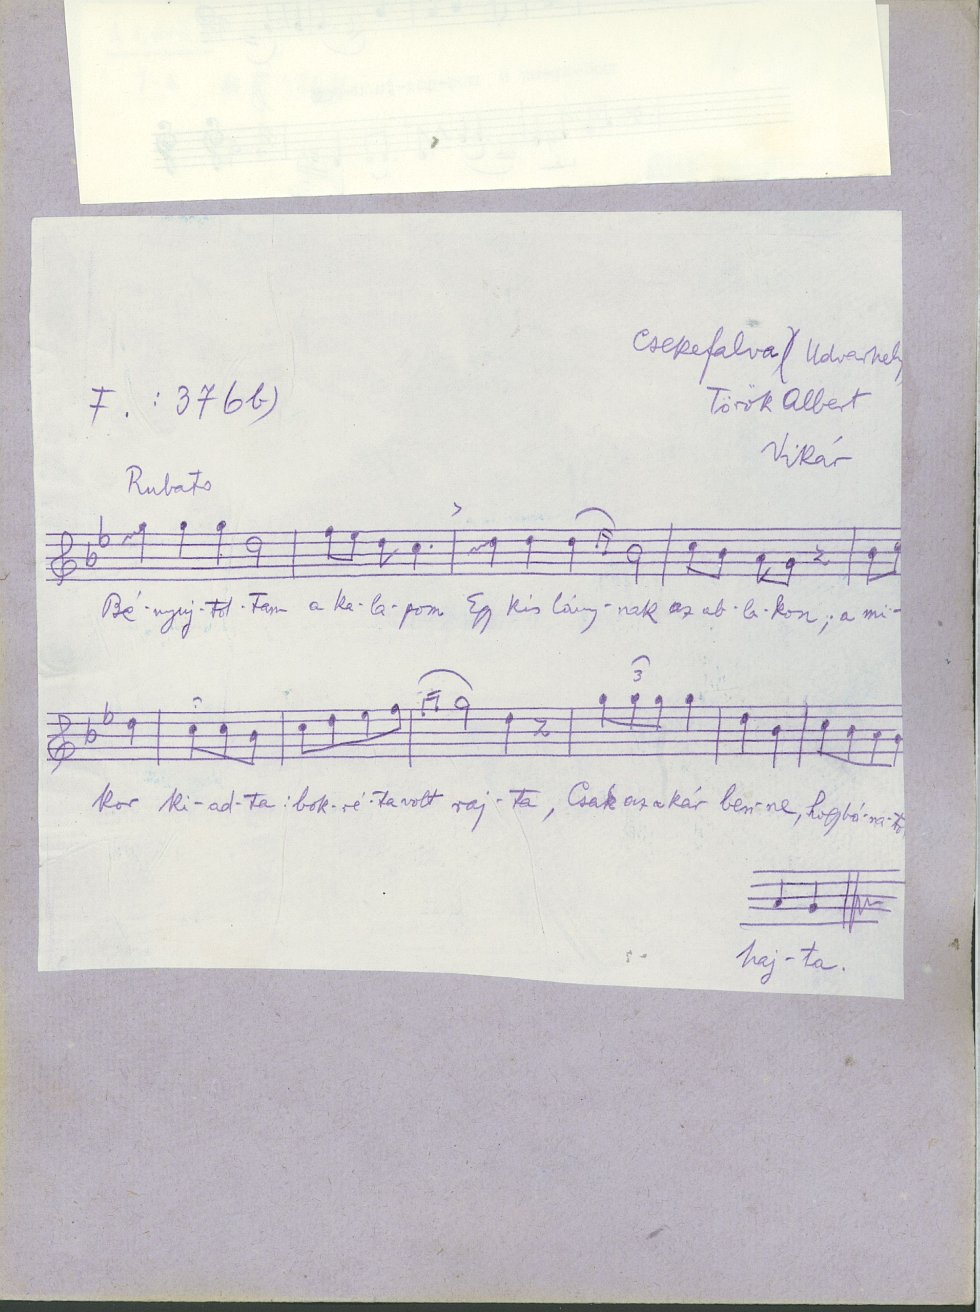 Csekefalva (Udvarhely
F. : 376b)
Török Albert
Vikár
Rubato
Bé-nyuj-tot-tam a ka-la-pom Egy kis lány-nak az ab-la-kon, a mi-
3
kor ki-ad-ta : bok-ré-ta volt raj-ta, Csak az a kár ben-ne, hogy bú-ra-
haj-ta.